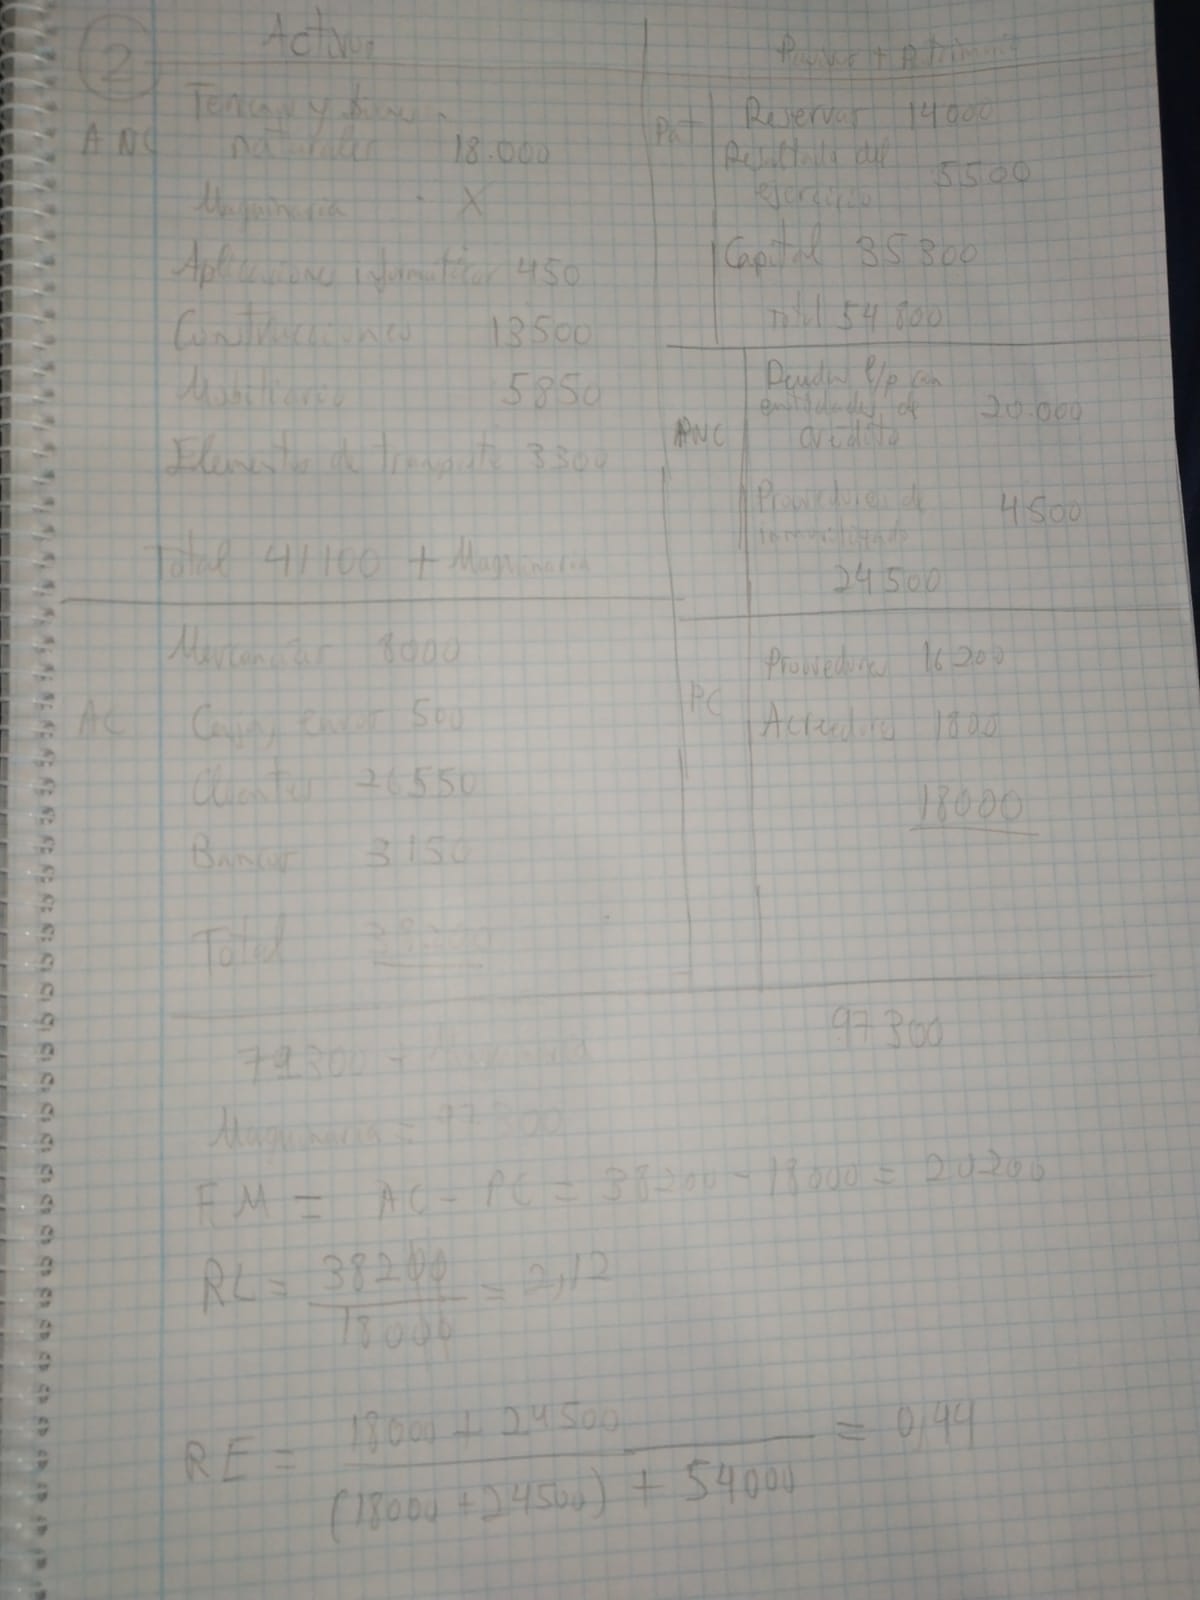 2
Activo
Pasivo + Patrimonio
ANC
Terrenos y bienes
naturales 18.000
Maquinaria X
Aplicaciones informáticas 450
Construcciones 13500
Mobiliario 5850
Elementos de transporte 3300
Total 41100 + Maquinaria
AC
Mercancías 8000
Caja, euros 500
Clientes 26550
Bancos 3150
Total 38200
Pat
Reservas 14000
Resultado del
ejercicio 5500
Capital 35300
Total 54800
PNC
Deudas l/p con
entidades de 20.000
crédito
Proveedores de
inmovilizado 4500
24500
PC
Proveedores 16200
Acreedores 1800
18000
97300
+
Maquinaria =
FM = AC - PC = 38200 - 18000 = 20200
RL = 38200 / 18000 = 2,12
RE = 18000 + 24500 / (18000 + 24500) + 54000 = 0,44